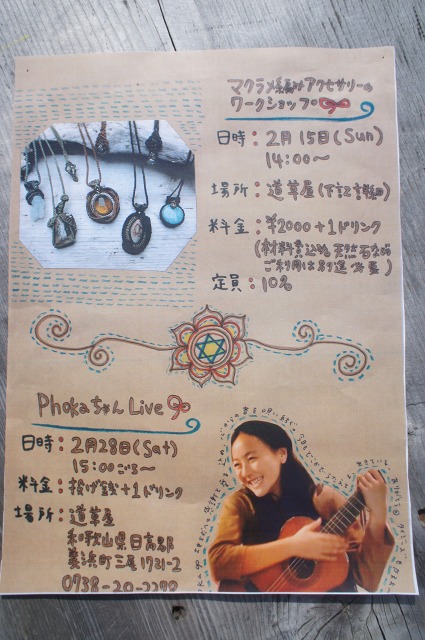 マクラメ編みアクセサリーの
ワークショップ
日時：2月15日(Sun)
14:00〜
場所：道草屋(下記詳細)
料金：¥2000+1ドリンク
(材料費込み 天然石など
ご利用は別途必要)
定員：10名
Phokaちゃん Live
日時：2月28日(Sat)
15:00ごろ〜
料金：投げ銭+1ドリンク
場所：道草屋
和歌山県日高郡
美浜町三尾1731-2
0738-20-